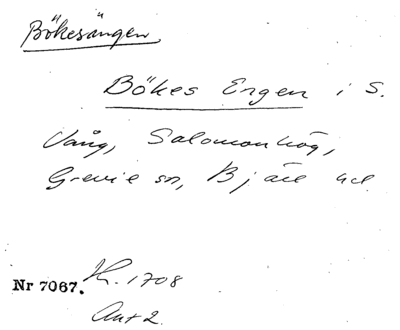 Bökesängen
Bökes Engen i S.
Vång, Salomonhög,
Grevie sn, Bjäre hd
Nr 7067. K. 1708
Ant 2.